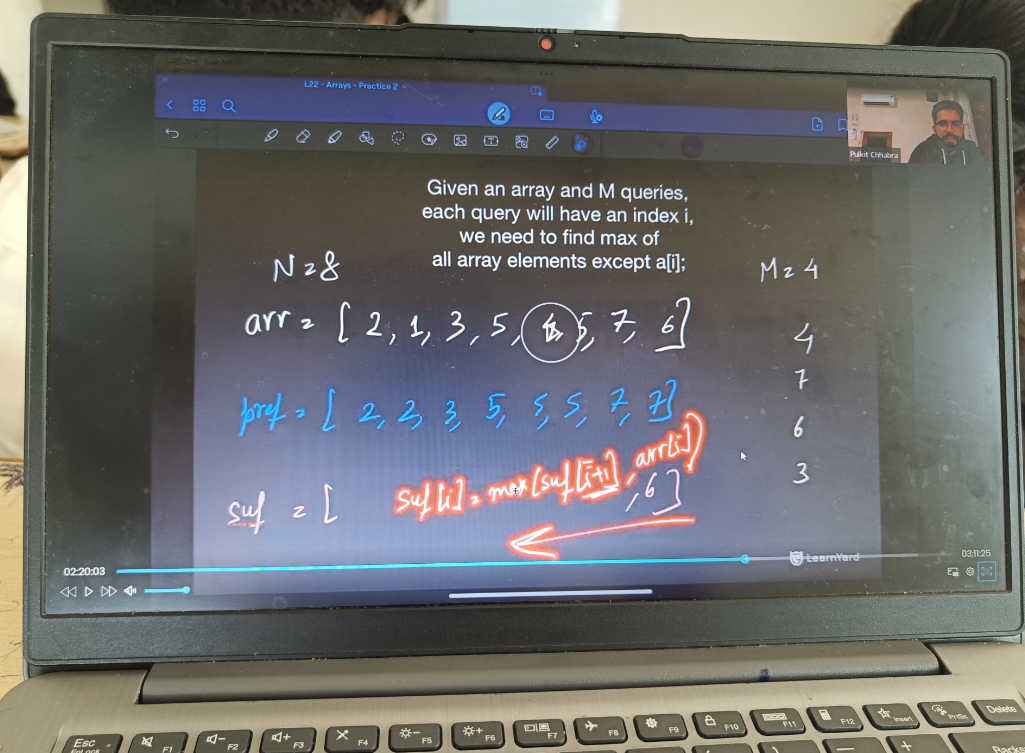 L22 - Arrays - Practice 2
Pulkit Chhabra
Given an array and M queries,
each query will have an index i,
we need to find max of
all array elements except a[i];
N=8
M=4
arr = [ 2, 1, 3, 5, 5, 7, 6 ]
4
7
6
3
pref = [ 2, 2, 3, 5, 5, 5, 7, 7 ]
suf[i] = max(suf[i+1], arr[i])
suf = [ , 6 ]
LearnYard
02:20:03
03:11:25
Esc
FnLock
F1
F2
F3
F4
F5
F6
F7
F8
F9
F10
F11
F12
Insert
PrtSc
Delete